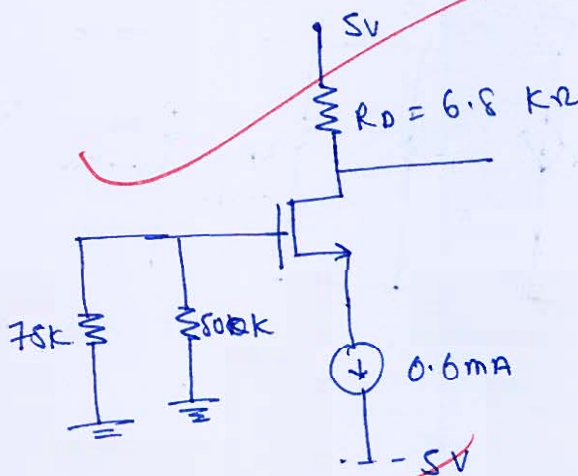 5V
RD = 6.8 KΩ
75K
500K
0.6mA
- 5V